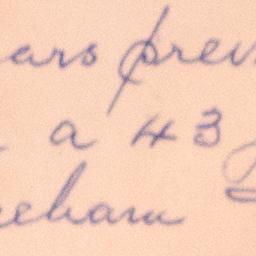 ars prev
a 43
eham